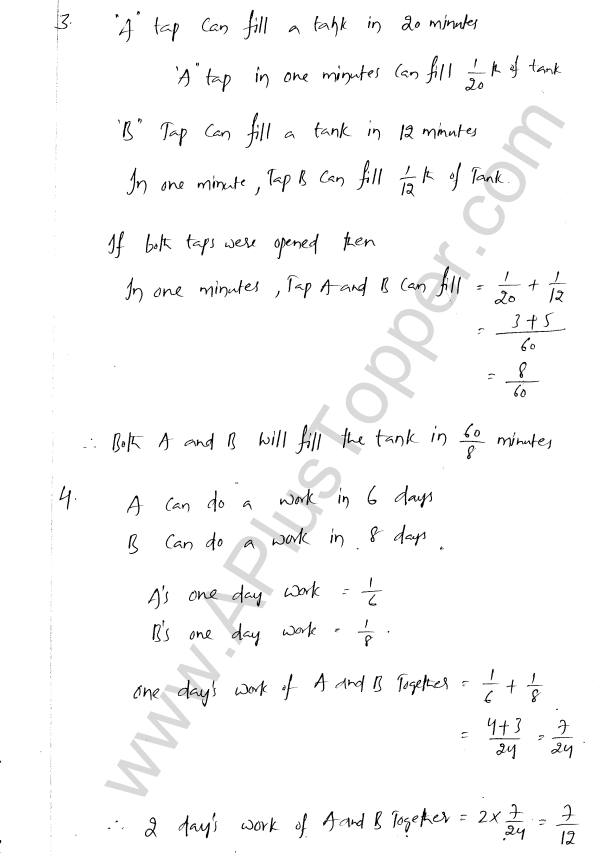 3. "A" tap can fill a tank in 20 minutes
"A" tap in one minutes can fill 1/20 th of tank
"B" Tap can fill a tank in 12 minutes
In one minute, Tap B can fill 1/12 th of Tank.
If both taps were opened then
In one minutes, Tap A and B can fill = 1/20 + 1/12
= 3+5/60
= 8/60
∴ Both A and B will fill the tank in 60/8 minutes
4. A can do a work in 6 days
B can do a work in 8 days.
A's one day work = 1/6
B's one day work = 1/8.
one day's work of A and B Together = 1/6 + 1/8
= 4+3/24 = 7/24.
∴ 2 day's work of A and B Together = 2 × 7/24 = 7/12
www.APlusTopper.com